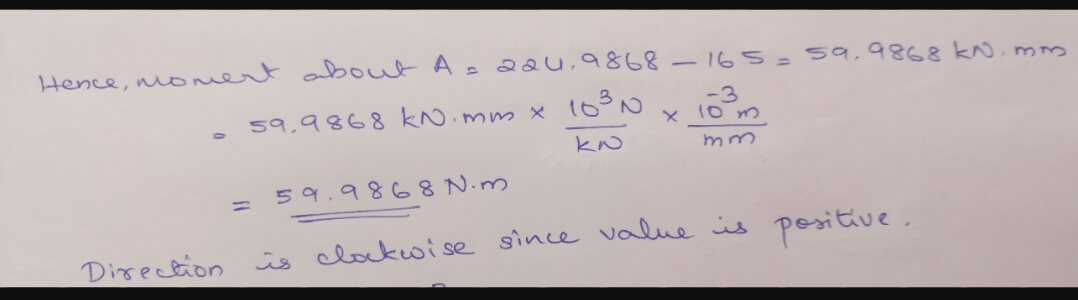 Hence, moment about A = 224.9868 - 165 = 59.9868 kN.mm
= 59.9868 kN.mm × 10³ N / kN × 10⁻³ m / mm
= 59.9868 N.m
Direction is clockwise since value is positive.